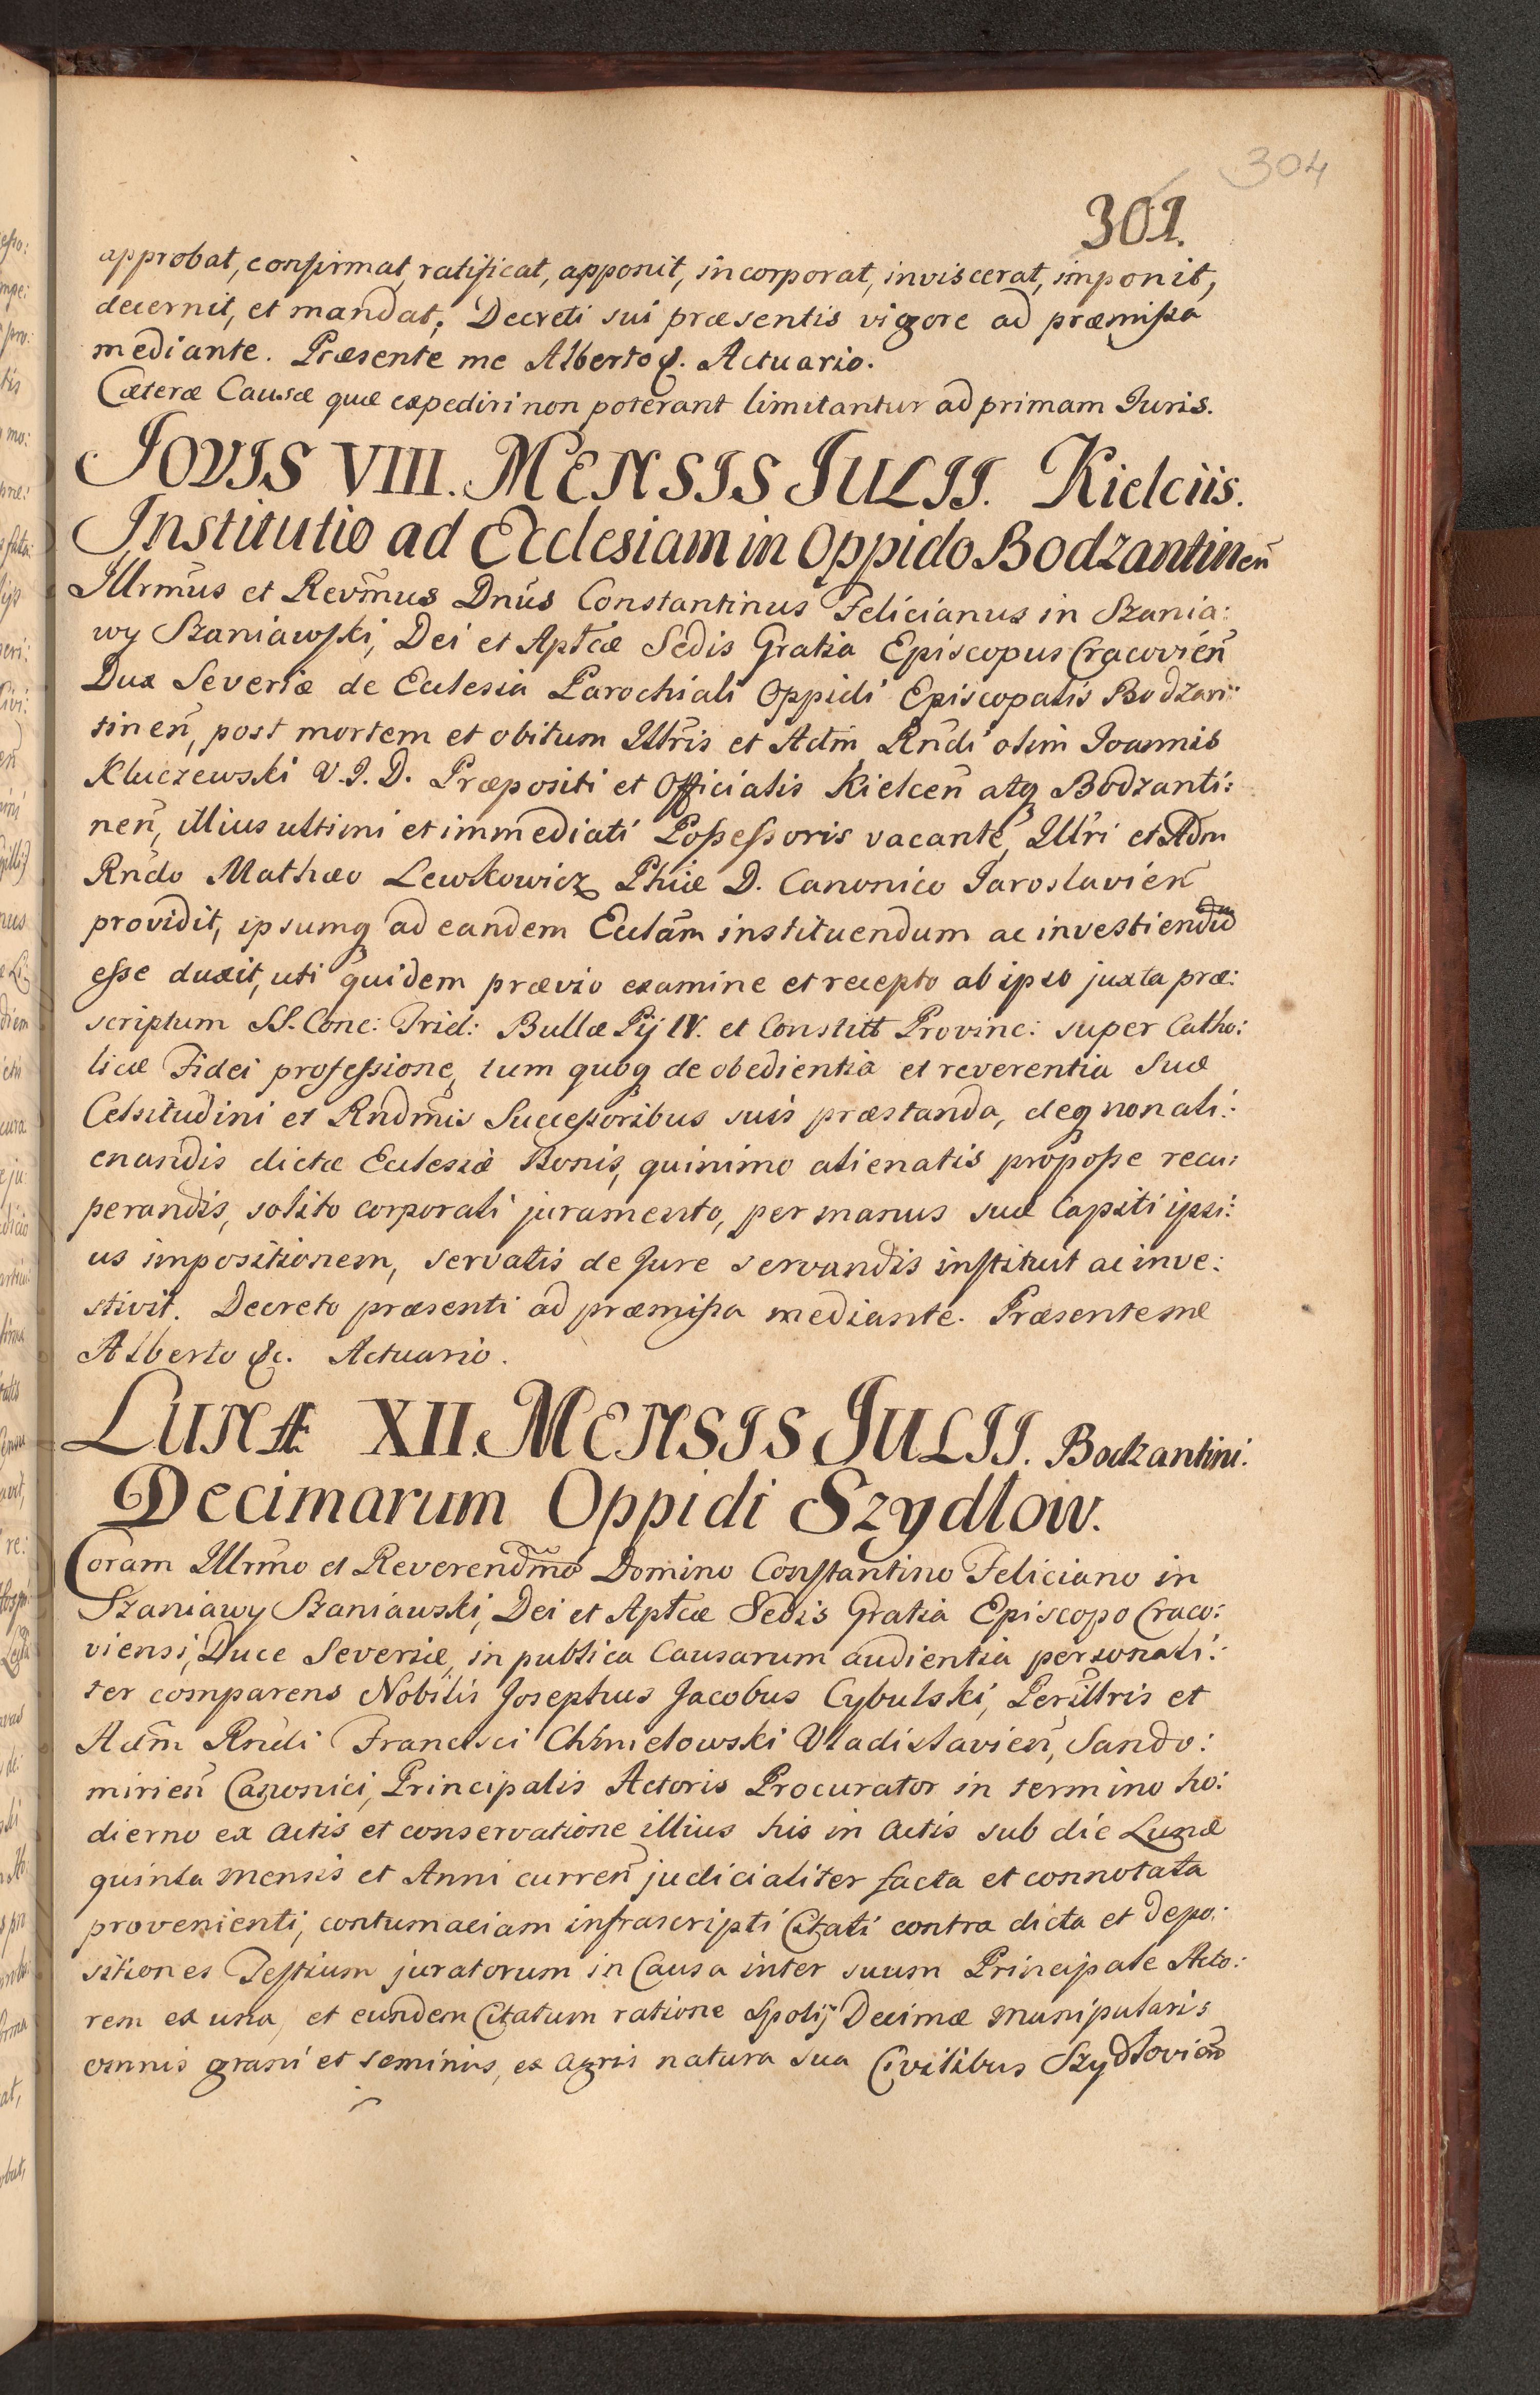 304
301.
approbat, confirmat, ratificat, apponit, incorporat, inviscerat, imponit,
decernit, et mandat, Decreti sui præsentis vigore ad præmissa
mediante. Præsente me Alberto &. Actuario.
Cæteræ Causæ quæ expediri non poterant limitantur ad primam Iuris.
JOVIS VIII. MENSIS JULII. Kielciis.
Institutio ad Ecclesiam in Oppido Bodzantineñ
Illrm̃us et Revm̃us Dnũs Constantinus Felicianus in Szania:
wy Szaniawski, Dei et Aptcæ Sedis Gratia Episcopus Cracovieñ
Dux Severiæ de Ecclesia Parochiali Oppidi Episcopalis Bodzan:
tineñ, post mortem et obitum Illris et Adm̃ Rndi olim Joannis
Kluczewski V.J.D. Præpositi et Officialis Kielceñ atq Bodzanti:
neñ, illius ultimi et immediati Possessoris vacante, Illri et Adm
Rndo Mathæo Lewkowicz Phiæ D. Canonico Jaroslavieñ
providit, ipsumq ad eandem Ecclãm instituendum ac investiendũ
esse duxit, uti quidem prævio examine et recepto ab ipso juxta præ:
scriptum SS. Conc: Trid: Bullæ Pij IV. et Constitt Provinc: super Catho:
licæ Fidei professione, tum quoq de obedientia et reverentia Suæ
Celsitudini et Rndm̃is Successoribus suis præstanda, deq non ali:
enandis dictæ Ecclesiæ Bonis, quinimo alienatis pro posse recu:
perandis, solito corporali juramento, per manus suæ Capiti ipsi:
us impositionem, servatis de Jure servandis instituit ac inve:
stivit. Decreto præsenti ad præmissa mediante. Præsente me
Alberto &c. Actuario.
LUNÆ XII. MENSIS JULII. Bodzantini.
Decimarum Oppidi Szydłow.
Coram Illrm̃o et Reverendm̃o Domino Constantino Feliciano in
Szaniawy Szaniawski, Dei et Aptcæ Sedis Gratia Episcopo Craco:
viensi, Duce Severiæ, in publica Causarum audientia personali:
ter comparens Nobilis Josephus Jacobus Cybulski, Perillris et
Adm̃ Rndi Francisci Chmielowski Vladislavieñ, Sando:
mirieñ Canonici, Principalis Actoris Procurator in termino ho:
dierno ex actis et conservatione illius his in actis sub die Lunæ
quinta mensis et Anni curreñ judicialiter facta et connotata
provenienti, contumaciam infrascripti Citati contra dicta et depo:
sitiones Testium juratorum in Causa inter suum Principale Acto:
rem ex una, et eundem Citatum ratione Spolij Decimæ manipularis
omnis grani et seminis, ex agris natura sua Civilibus Szydłovieñ